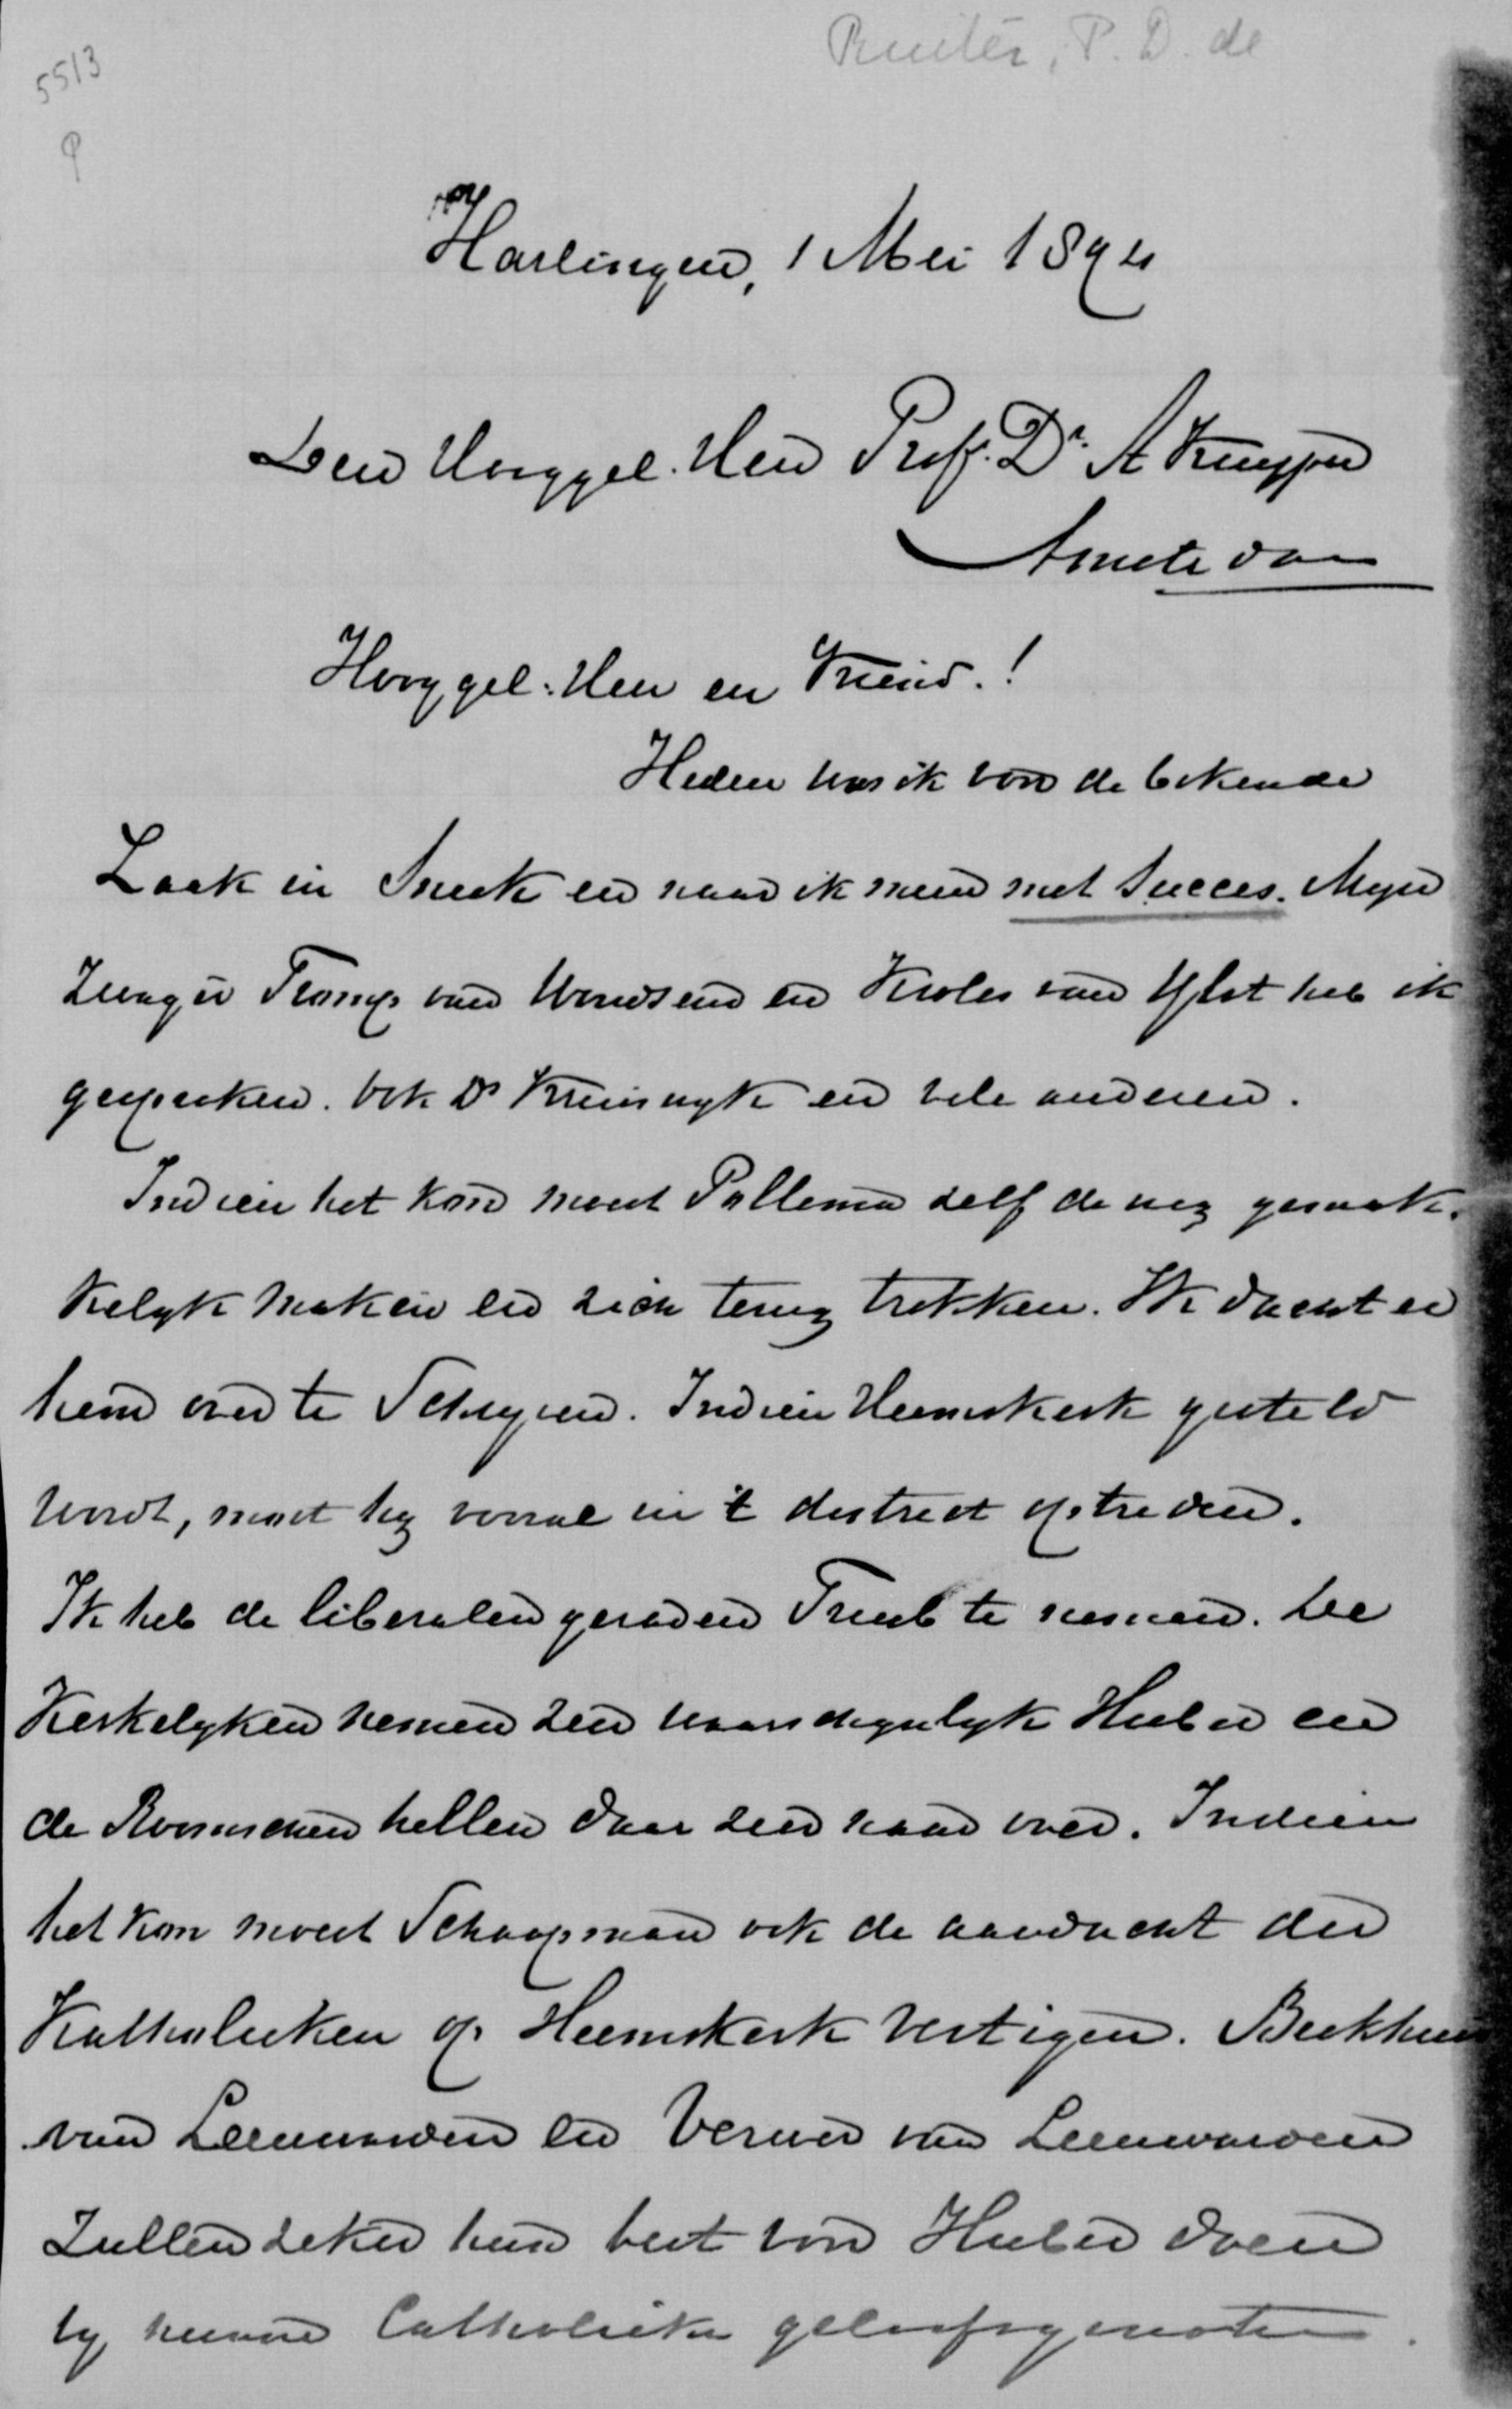 5513
Ruiter, P. D. de
Harlingen, 1 Mei 1894
Den Hooggel. Heer Prof. Dr. A Kuyper
Amsterdam
Hooggel. Heer en Vriend!
Heden was ik voor de bekende
Zaak in Sneek en naar ik meen met succes. Mijn
Zwager Tromp van Woudsend en Kroles van IJlst heb ik
gesproken. Ook Ds Kruiswyk en vele anderen.
Indien het kon moest Pollema zelf de weg gemak-
kelyk maken en zich terug trekken. Ik dacht er
hem over te Schryven. Indien Heemskerk gesteld
wordt, moet hy vooral in 't district optreden.
Ik heb de liberalen geraden Treub te nemen. De
Kerkelyken nemen dan waarschynlyk Huber en
de Roomschen hellen daar zeer naar over. Indien
het kon moest Schaepman ook de aandacht der
Katholieken op Heemskerk vestigen. Beekhuis
van Leeuwarden en Verwer van Leeuwarden
Zullen zeker hun best voor Huber doen
by hunne Catholieke geloofsgenoten.